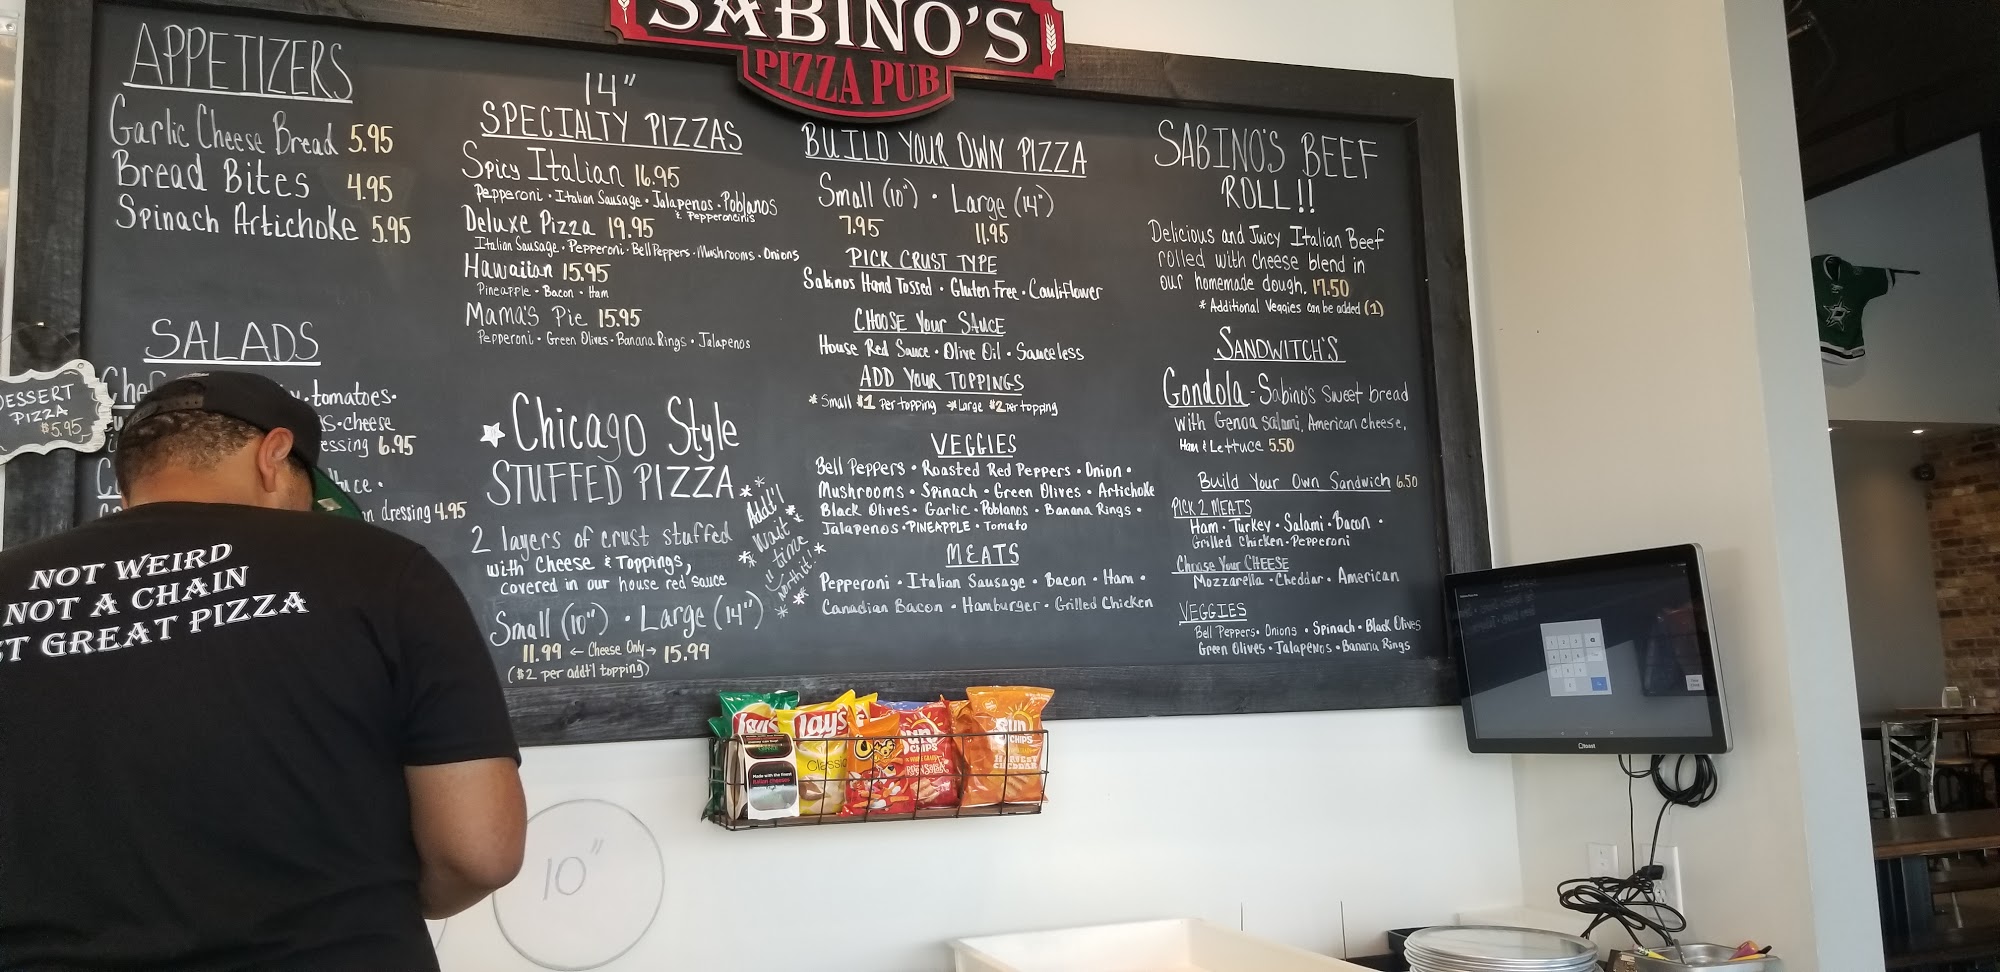 SABINO'S
PIZZA PUB
APPETIZERS
Garlic Cheese Bread 5.95
Bread Bites 4.95
Spinach Artichoke 5.95
SALADS
Chef
tomatoes.
cheese
6.95
dressing 4.95
DESSERT
PIZZA
$5.95
14"
SPECIALTY PIZZAS
Spicy Italian 16.95
Pepperoni • Italian Sausage • Jalapenos • Poblanos
& Pepperoncinis
Deluxe Pizza 19.95
Italian Sausage • Pepperoni • Bell Peppers • Mushrooms • Onions
Hawaiian 15.95
Pineapple • Bacon • Ham
Mama's Pie 15.95
Pepperoni • Green Olives • Banana Rings • Jalapenos
Chicago Style
STUFFED PIZZA
2 layers of crust stuffed
with Cheese & Toppings,
covered in our house red sauce
Small (10") • Large (14")
11.99 ← Cheese Only → 15.99
($2 per addt'l topping)
* Addt'l *
Wait *
* time *
"worth it!!" *
BUILD YOUR OWN PIZZA
Small (10") • Large (14")
7.95 11.95
PICK CRUST TYPE
Sabinos Hand Tossed • Gluten Free • Cauliflower
CHOOSE Your SAUCE
House Red Sauce • Olive Oil • Sauceless
ADD YOUR TOPPINGS
* Small $1 Per topping * Large $2 Per topping
VEGGIES
Bell Peppers • Roasted Red Peppers • Onion •
Mushrooms • Spinach • Green Olives • Artichoke
Black Olives • Garlic • Poblanos • Banana Rings •
Jalapenos • PINEAPPLE • Tomato
MEATS
Pepperoni • Italian Sausage • Bacon • Ham •
Canadian Bacon • Hamburger • Grilled Chicken
SABINO'S BEEF
ROLL!!
Delicious and Juicy Italian Beef
rolled with cheese blend in
our homemade dough. 17.50
* Additional Veggies can be added (1)
SANDWITCH'S
Gondola - Sabino's Sweet bread
with Genoa Salami, American cheese,
Ham & Lettuce 5.50
Build Your Own Sandwich 6.50
PICK 2 MEATS
Ham • Turkey • Salami • Bacon •
Grilled Chicken • Pepperoni
Choose Your CHEESE
Mozzarella • Cheddar • American
VEGGIES
Bell Peppers • Onions • Spinach • Black Olives
Green Olives • Jalapenos • Banana Rings
NOT WEIRD
NOT A CHAIN
GREAT PIZZA
Lay's
Lay's
Classic
SUN
CHIPS
Sun
CHIPS
HARVEST
CHEDDAR
toast
10"